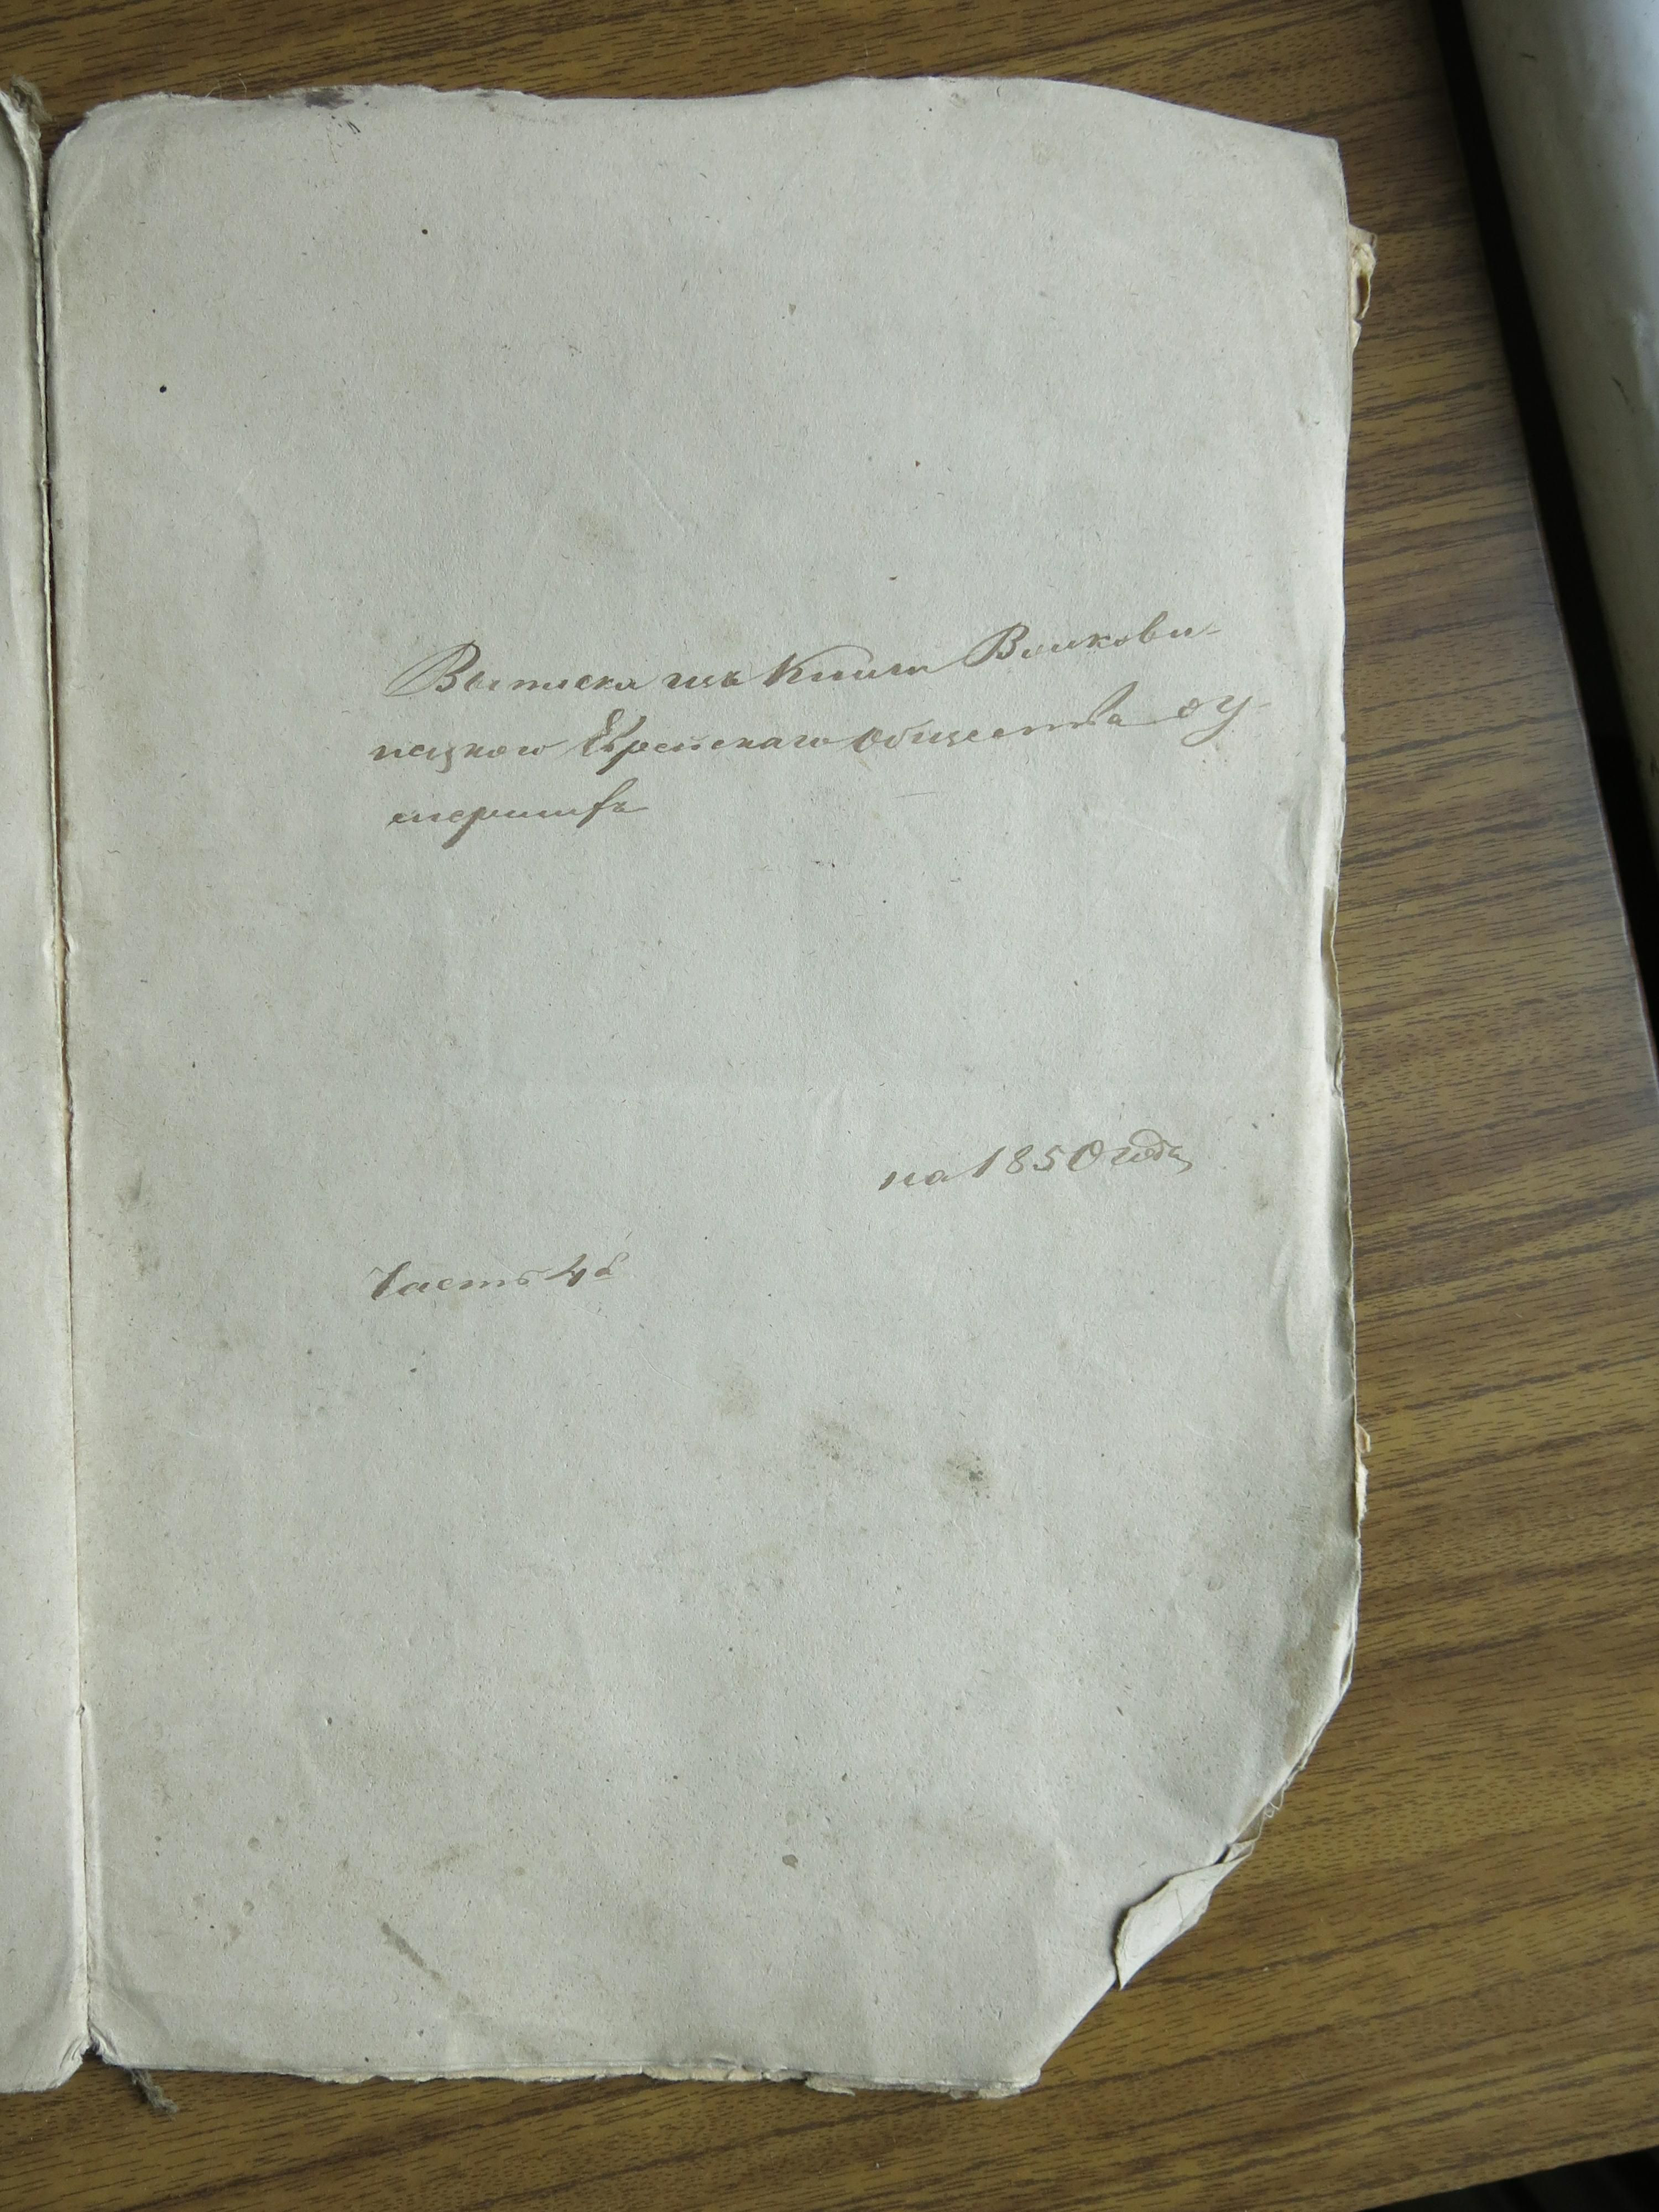 Выписка изъ Книги Вилкови-
шскаго Еврейскаго общества о у-
мершихъ
на 1850 годъ
Часть 4я